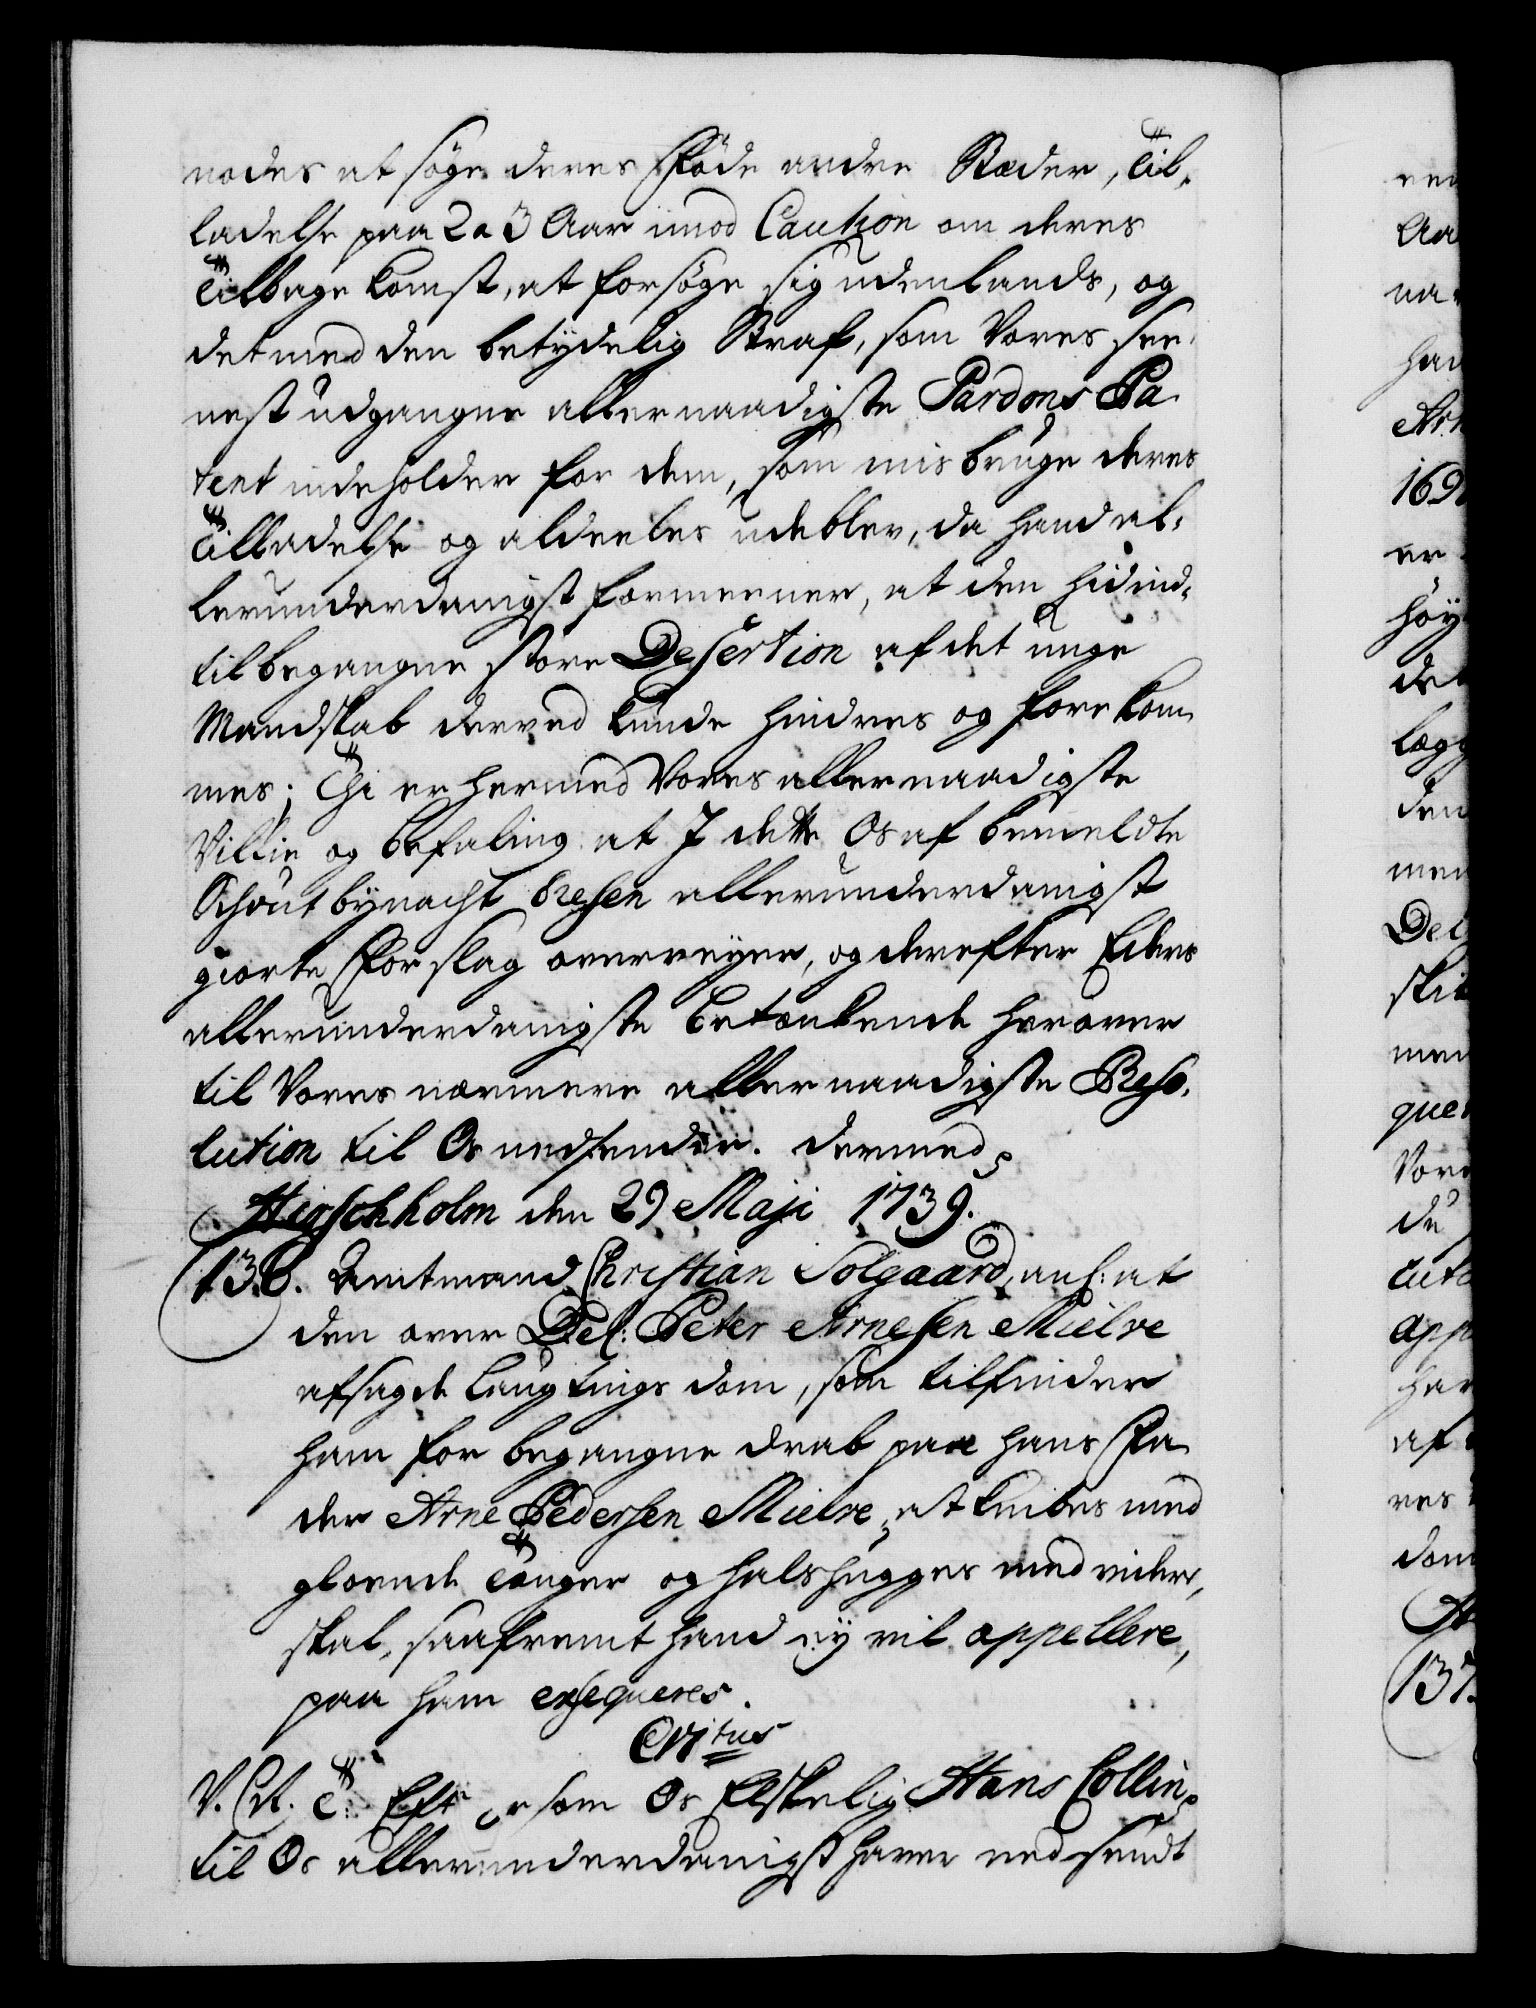 nødes at søge deres Føde andre Stæder, Til-
ladelse paa 2 a 3 Aar imod Caution om deres
Tilbage komst, at forsøge sig udenlands, og
det med den betydelig Straf, som Vores see-
nest udgangne allernaadigste Pardons Pa-
tent indeholder for dem, som misbruge deres
Tilladelse og aldeeles udeblev, da hand al-
lerunderdanigst formeener, at den hidind-
til begangne store Desertion af det unge
Mandskab derved kunde hindres og forekom-
mes; Thi er hermed Vores allernaadigste
Villie og befaling at I dette Os af bemeldte
Schoutbynacht Dresen allerunderdanigst
giorte Forslag overveyer, og derefter Eders
allerunderdanigste betænkende herover
til Vores nærmere allernaadigste Reso-
lution til Os nedsender. Dermed
Hirschholm den 29 Maji 1739.
136. Amtmand Christian Solgaard, anl: at
den over Del: Peter Arnesen Mielve
afsagde Laugtings dom, som tilfinder
ham for begangne drab paa hans Fa-
der Arne Pedersen Mielve, at knibes med
gloende Tanger og halshugges med videre,
skal, saafremt hand ey vil appellere,
paa ham exequeres.
C VI tus
V. C A. T. Eftersom Os Elskelig Hans Collin
til Os allerunderdanigst haver nedsendt